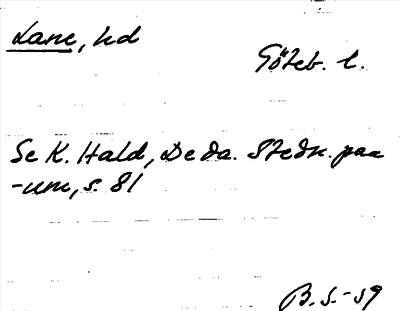 Lane, hd
Göteb. l.
Se K. Hald, De da. Stedn. paa
-um, s. 81
B. S. -59